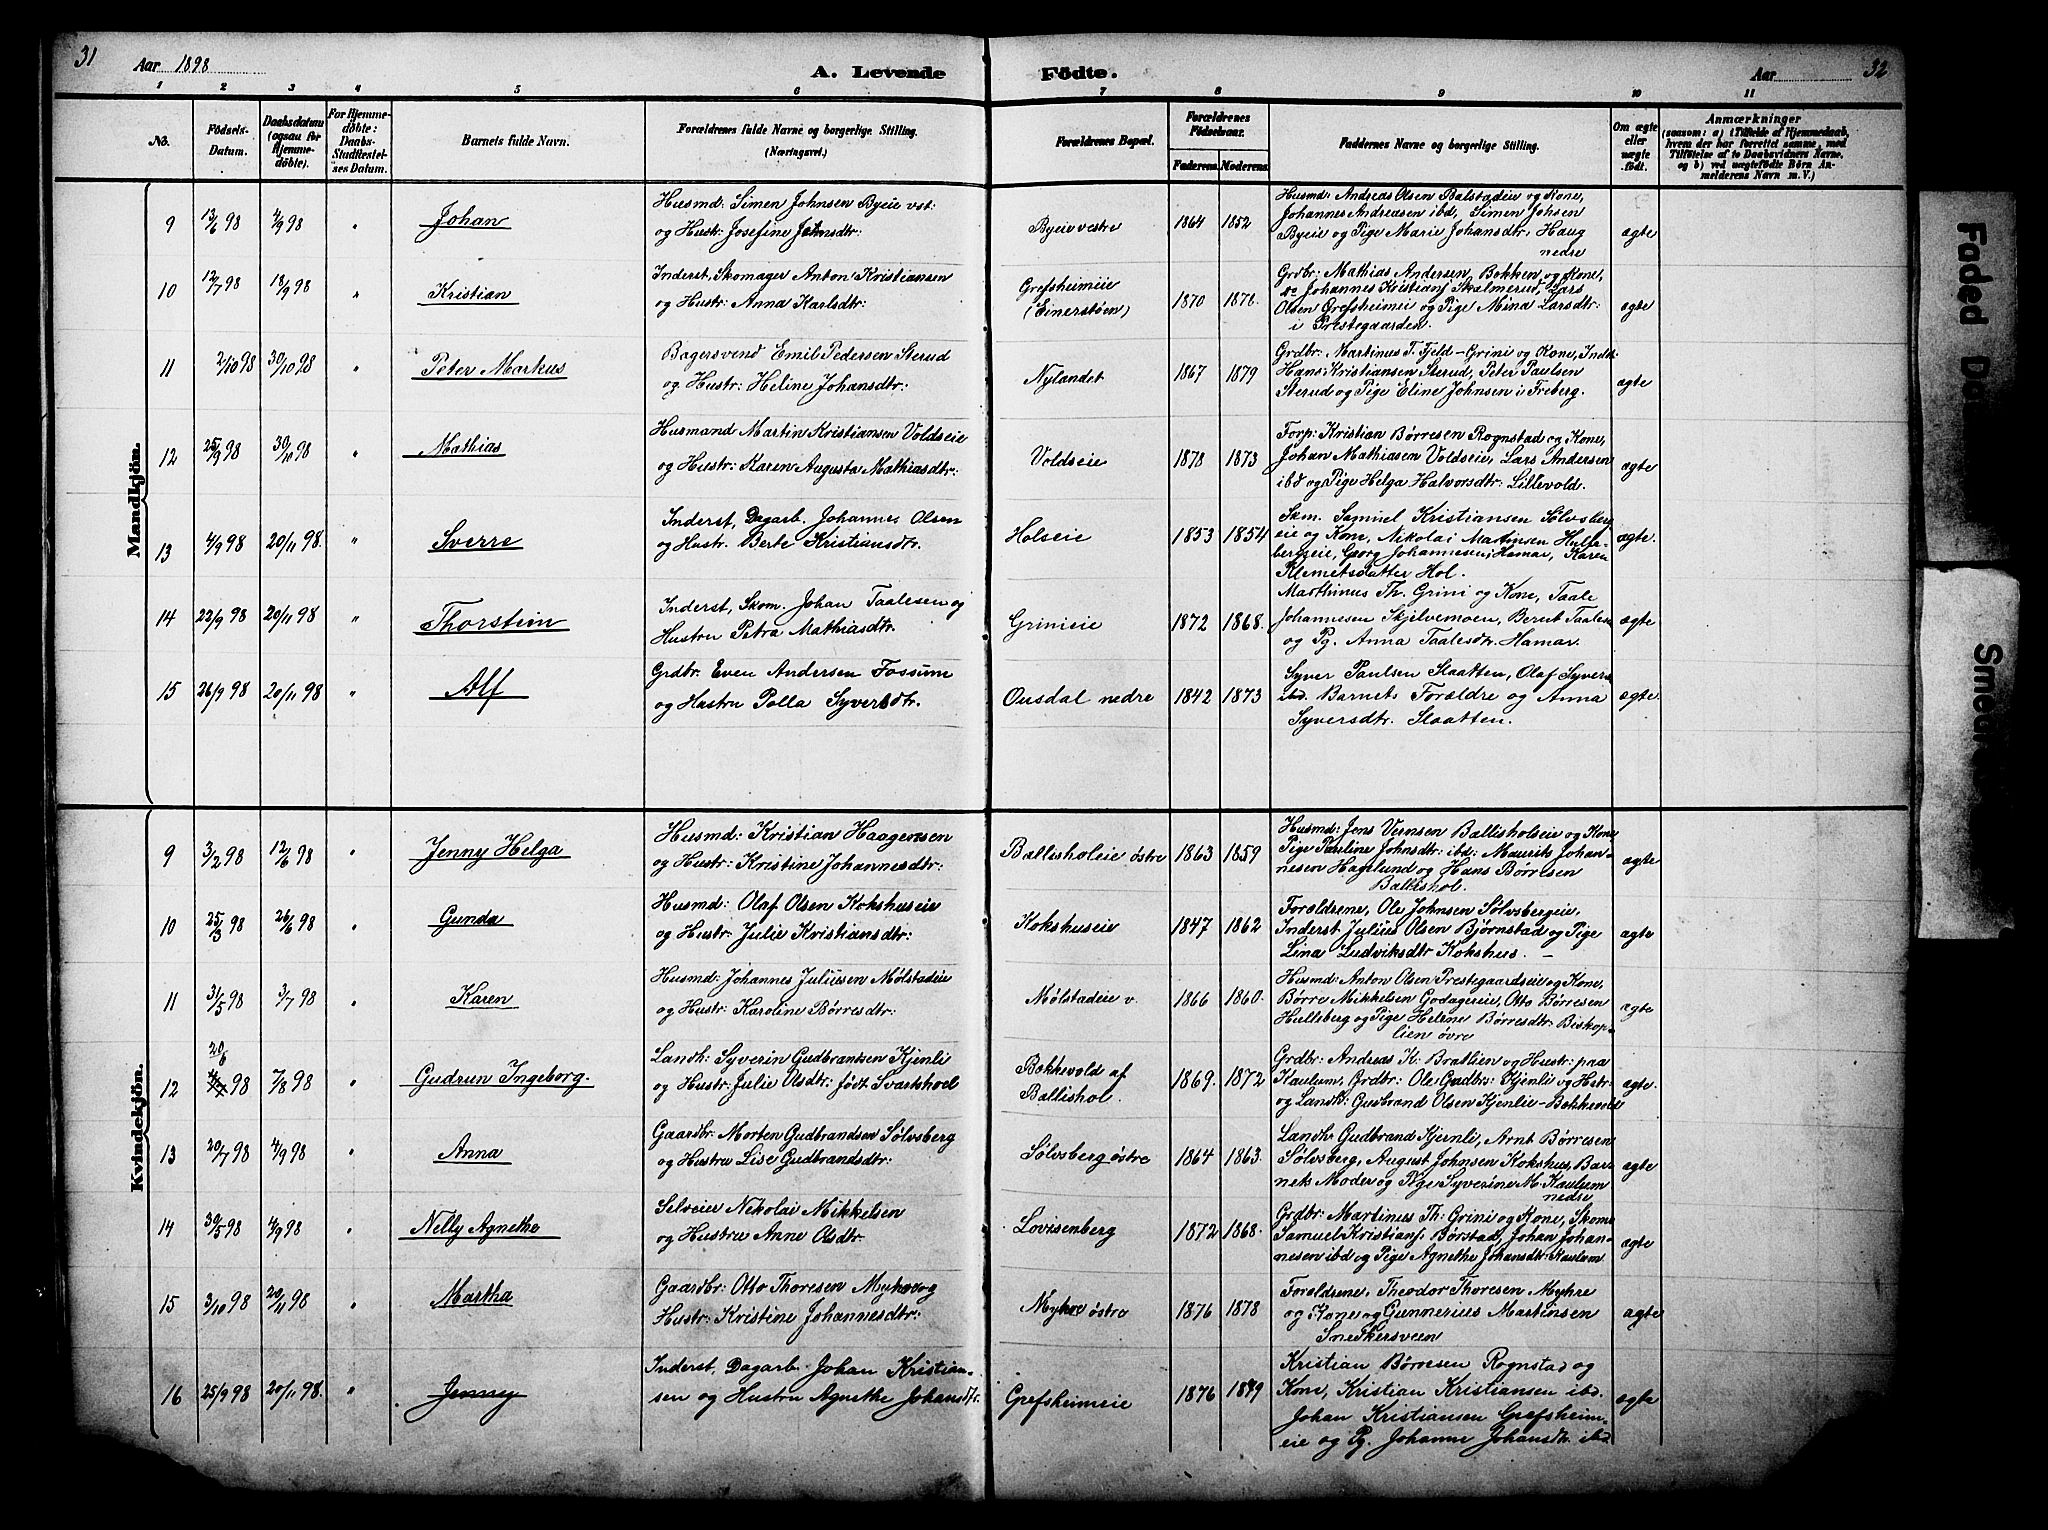 31
Aar 1898
A. Levende
Födte.
Aar
32
1 2 3 4 5 6 7 8 9 10 11
No.
Födsels-Datum.
Daabsdatum (ogsaa for Hjemmedöbte).
For Hjemmedöbte: Daabs-Stadfæstelses Datum.
Barnets fulde Navn.
Forældrenes fulde Navne og borgerlige Stilling. (Næringsvei.)
Forældrenes Bopæl.
Forældrenes Födselsaar.
Faderens. Moderens.
Faddernes Navne og borgerlige Stilling.
Om ægte eller uægte födt.
Anmærkninger
(saasom: a) i Tilfælde af Hjemmedaab, hvem der har forrettet samme, med Tilföielse af to Daabsvidners Navne, og b) ved uægtefödte Börn Anmelderens Navn m. V.)
Mandkjön.
9 13/6 98 4/9 98 " Johan
Husmd: Simen Johnsen Byeie vst:
og Hustr: Josefine Johnsdtr:
Byeie vestre 1864 1852
Husmd: Andreas Olsen Balstadeie og Kone,
Johannes Andreasen ibd, Simen Johsen
Byeie og Pige Marie Johansdtr, Haug
nedre
ægte
10 12/7 98 18/9 98 " Kristian
Inderst, Skomager Anton Kristiansen
og Hustr: Anna Karlsdtr:
Grefsheimeie
(Einerstøen)
1870 1872.
Grdbr: Mathias Andersen, Bokken, og Kone,
Johannes Kristians Skalmerud, Lars
Olsen Grefsheimeie og Pige Mina Larsdtr:
i Prestegaarden.
ægte
11 2/10 98 30/10 98 " Peter Markus
Bagersvend Emil Pedersen Sterud
og Hustr: Heline Johansdtr:
Nylandet 1867 1879
Grdbr: Martinus T. Fjeld-Grini og Kone, Inds:
Hans Kristiansen Sterud, Peter Paulsen
Sterud og Pige Eline Johnsen i Freberg.
ægte
12 25/9 98 30/10 98 " Mathias
Husmand Martin Kristiansen Voldseie
og Hustr: Karen Augusta Mathiasdtr:
Voldseie 1878 1873
Forp: Kristian Børresen Rognstad og Kone,
Johan Mathiasen Voldseie, Lars Andersen
ibd og Pige Helga Halvorsdtr: Lillevold.
ægte
13 4/9 98 20/11 98. " Sverre
Inderst, Dagarb. Johannes Olsen
og Hustr. Berte Kristiansdtr.
Holseie 1853 1854
Skm. Samuel Kristiansen Sølvsberg
eie og Kone, Nikolai Martinsen Hulle-
bergeie, Georg Johannesen, Hamar, Karen
Klemetsdatter Hol.
ægte.
14 22/9 98 20/11 98 " Thorstein
Inderst, Skom. Johan Taalesen og
Hustru Petra Mathiasdtr.
Grinieie 1872 1868.
Marthinus Th. Grini og Kone, Taale
Johannesen Skjelvemoen, Bernt Taalesn
og Pg. Anna Taalesdtr. Hamar.
ægte
15 26/9 98 20/11 98 " Alf
Grdbr. Even Andersen Fossum
og Hustru Polla Syversdtr.
Ousdal nedre 1842 1873
Syver Paulsen Slaatten, Olaf Syvers
ibd. Barnets Forældre og Anna
Syversdtr. Slaatten.
ægte.
Kvindekjön.
9 3/2 98 12/6 98 " Jenny Helga
Husmd: Kristian Haagensen
og Hustr: Kristine Johannesdtr:
Ballisholeie østre 1863 1859
Husmd: Jens Vernsen Ballisholeie og Kone,
Pige Pauline Johnsdtr: ibd: Maurits Johan-
nesen Hagelund og Hans Børresen
Ballishol.
ægte
10 25/3 98 26/6 98 " Gunda
Husmd: Olaf Olsen Kokshuseie
og Hustr: Julie Kristiansdtr:
Kokshuseie 1847 1862
Forældrene, Ole Johnsen Sølvsbergeie,
Inderst Julius Olsen Bjørnstad og Pige
Lina Ludviksdtr Kokshus. –
ægte
11 31/5 98 3/7 98 " Karen
Husmd: Johannes Juliusen Mølstadeie
og Hustr: Karoline Børresdtr:
Mølstadeie v. 1866 1860.
Husmd: Anton Olsen Prestegaardseie og Kone,
Børre Mikkelsen Godagereie, Otto Børresen
Hulleberg og Pige Helene Børresdtr: Biskop-
lien øvre
ægte
12 20/6 98 7/8 98 " Gudrun Ingeborg.
Landh: Syverin Gudbrandsen Kjenli
og Hustr: Julie Olsdtr: født Svarthoel
Bokkevold af
Ballishol.
1869. 1872
Grdbr: Andreas K. Bratlien og Hustr: paa
Kaulum, Grdbr: Ole Gudbrs: Kjenli og Hstr:
og Landh: Gudbrand Olsen Kjenlie-Bokkevold
ægte.
13 20/7 98 4/9 98 " Anna
Gaardbr: Morten Gudbrandsen Sølvsberg
og Hustru Lise Gudbrandsdtr:
Sølvsberg østre 1864 1863.
Landhr Gudbrand Kjenli, Arnt Børresen
Sølvsberg, August Johnsen Kokshus, Bar-
nets Moder og Pige Syverine M. Kaulum
nedre
ægte
14 30/5 98 4/9 98 " Nelly Agnethe
Selveier Nikolai Mikkelsen
og Hustru Anne Olsdtr.
Lovisenberg 1872 1868.
Grdbr: Martinus Th: Grini og Kone, Skom:
Samuel Kristians, Børstad, Johan Johan-
nesen ibd og Pige Agnethe Johansdtr: Kaulum
ægte
15 3/10 98 20/11 98 " Martha
Gaardbr: Otto Thoresen Myhre og
Hustr: Kristine Johannesdtr:
Myhre østre 1876 1878
Forældrene, Theodor Thoresen Myhre
og Kone og Gunnerius Martinsen
Snekkersveen
ægte
16 25/9 98 20/11 98. " Jenny
Inderst, Dagarb. Johan Kristian-
sen og Hustru Agnethe Johansdtr.
Grefsheimeie 1876 1879
Kristian Børresen Rognstad og
Kone, Kristian Kristiansen ibd.
Johan Kristiansen Grefsheim-
eie og Pg. Johanne Johansdtr. ibd
ægte
Faded
Smed